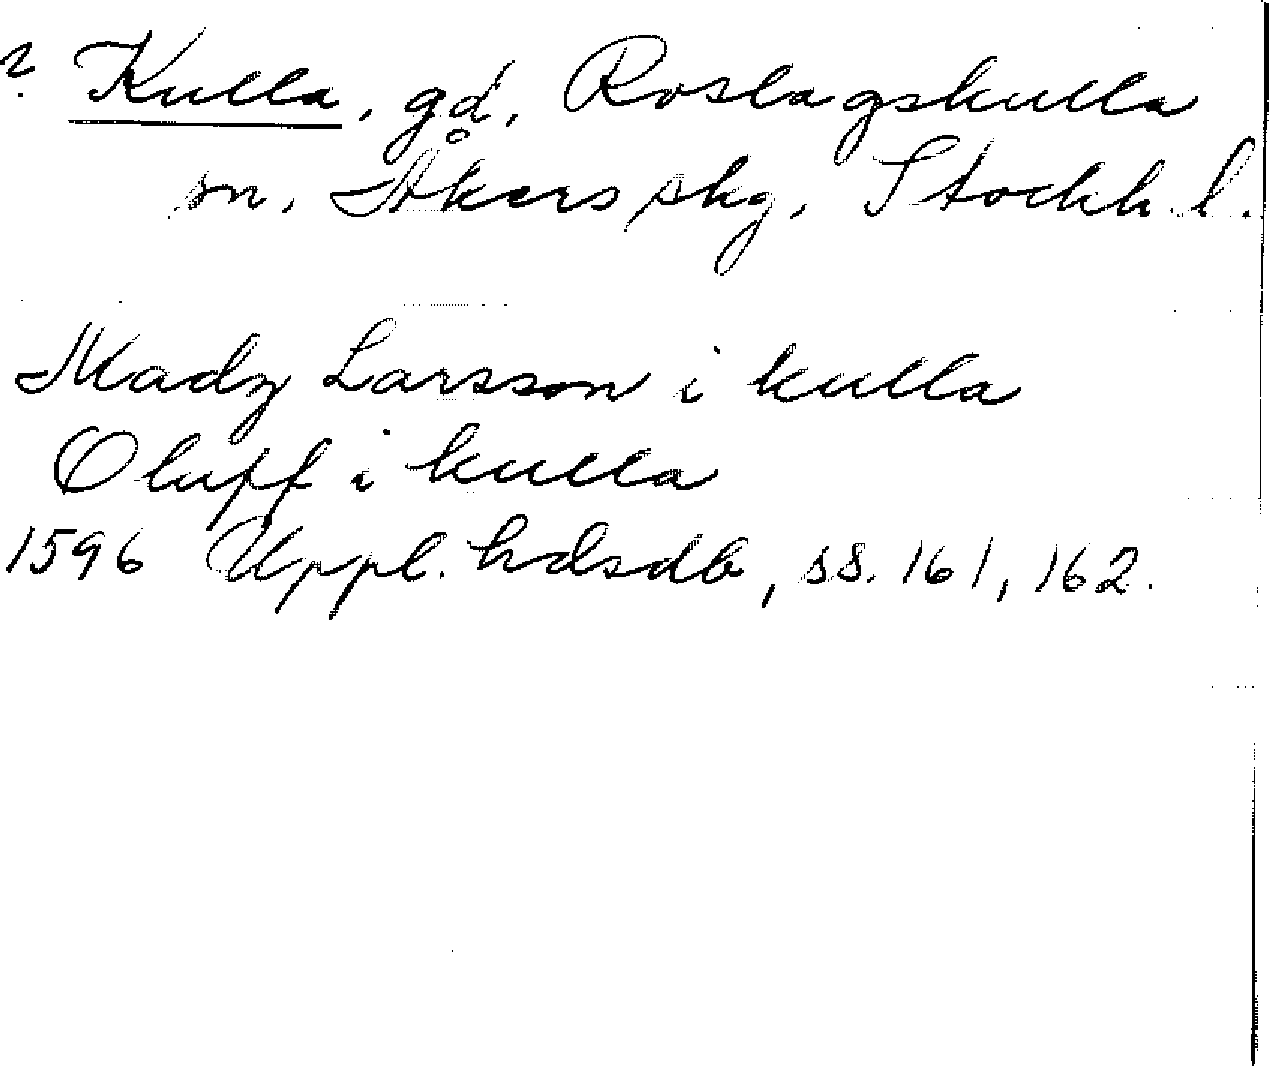 ? Kulla, gd, Roslagskulla
sn, Åkers skg, Stockh. l.
Madz Larsson i kulla
Oluff i kulla
1596 Uppl. hdsdb, ss. 161, 162.